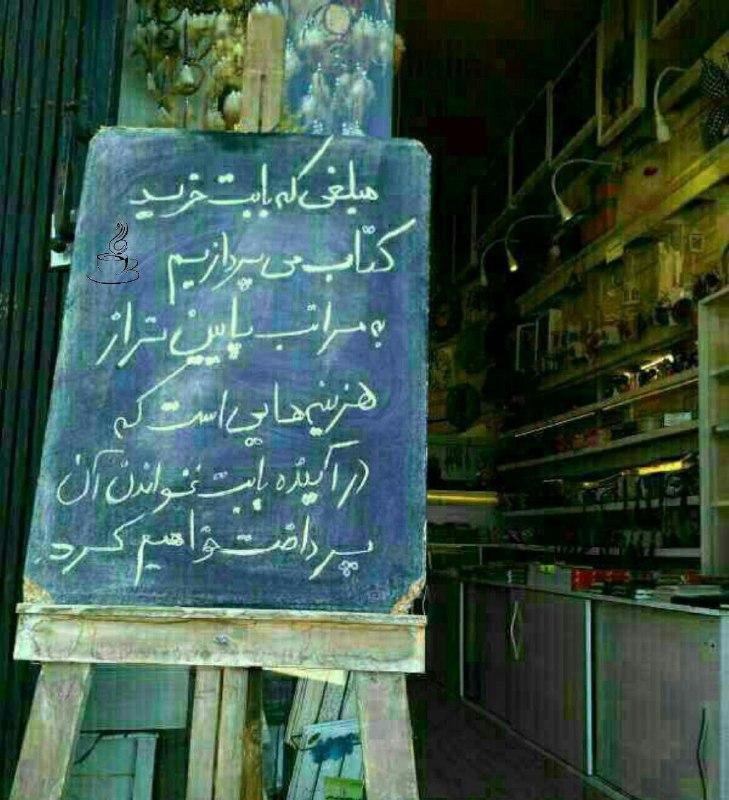 مبلغی که بابت خرید
کتاب می پردازیم
به مراتب پایین تر از
هزینه هایی است که
در آینده بابت نخواندن آن
پرداخت خواهیم کرد